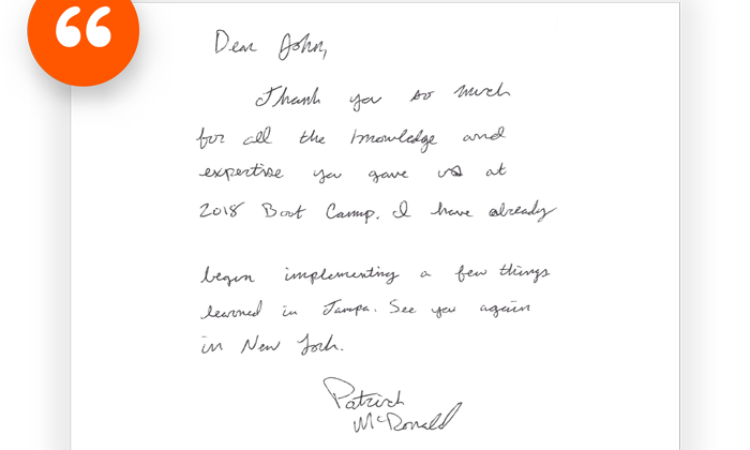 Dear John,
Thank you so much
for all the knowledge and
expertise you gave us at
2018 Boot Camp. I have already
begun implementing a few things
learned in Tampa. See you again
in New York.
Patrick
McDonald